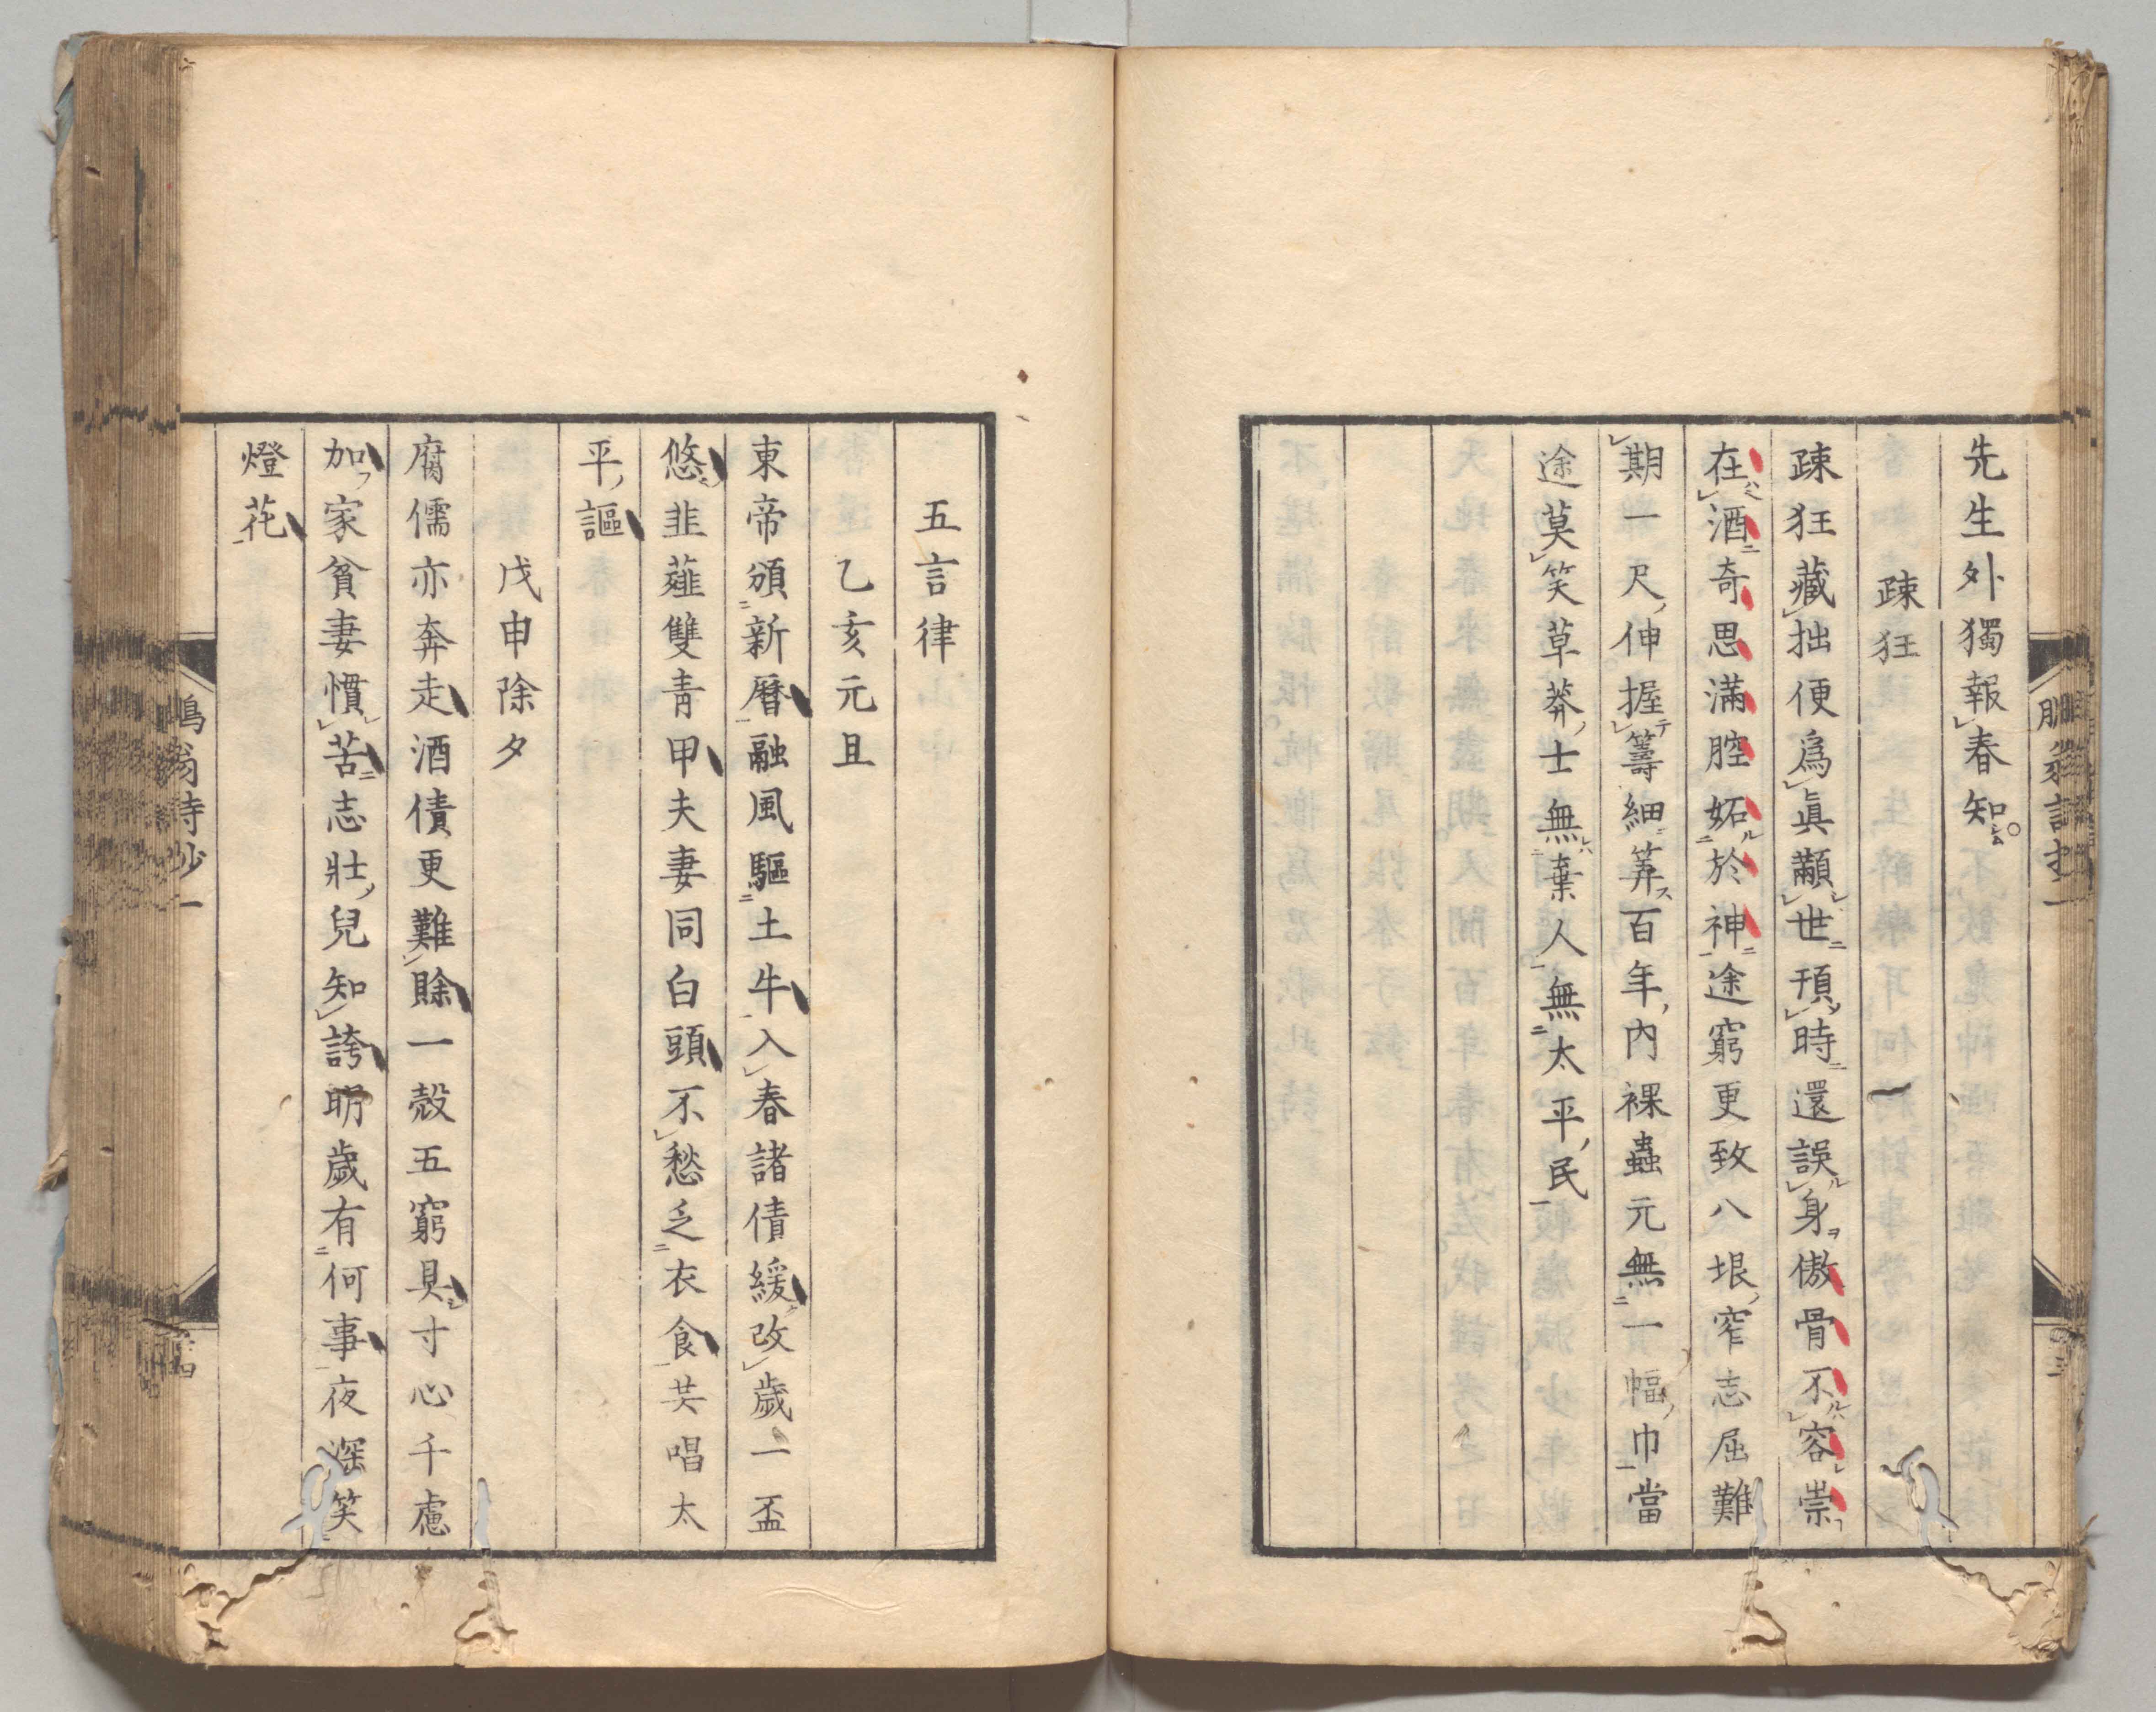 先生外獨報春知
疎狂
疎狂藏拙便爲眞顢世預時還誤身傲骨不容祟
在酒奇思滿腔妬於神途窮更致八垠窄志屈難
期一尺伸握籌細筭百年內裸蟲元無一幅巾當
途莫笑草莽士無棄人無太平民
五言律
乙亥元旦
東帝頒新曆融風驅土牛入春諸債緩改歲一盃
悠韭薤雙青甲夫妻同白頭不愁乏衣食共唱太
平謳
戊申除夕
腐儒亦奔走酒債更難賒一殼五窮具寸心千慮
加家貧妻慣苦志壯兒知誇明歲有何事夜深笑
燈花
翁詩抄一